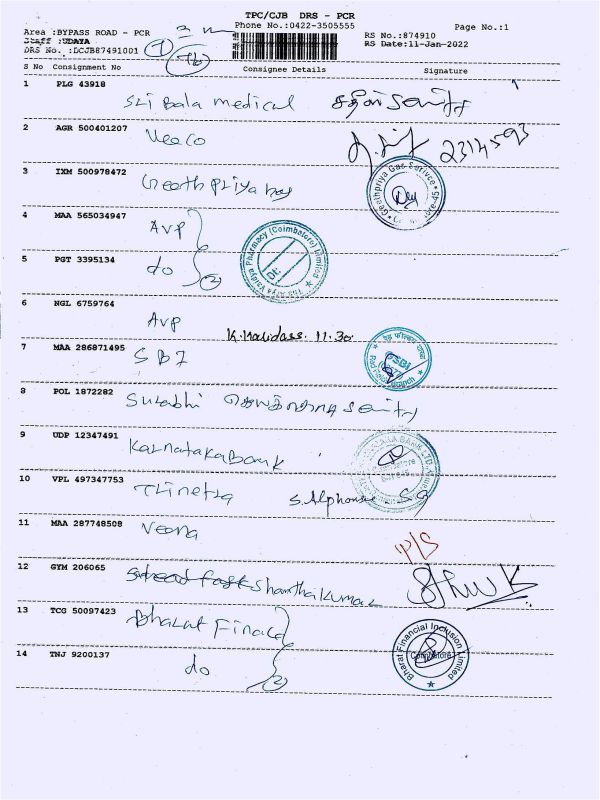 TPC/CJB DRS - PCR
Phone No.:0422-3505555
Page No.:1
Area :BYPASS ROAD - PCR
RS No.:874910
Staff :UDAYA
RS Date:11-Jan-2022
DRS No. :DCJB87491001
S No Consignment No Consignee Details Signature
1 PLG 43918
Sri Bala medical
2 AGR 500401207
Veeco
2314593
3 IXM 500978472
Geethpriya
Geethpriya Gas Serivce
4 MAA 565034947
AVP
The Arya Vaidya Pharmacy (Coimbatore) Limited
Dt:
5 PGT 3395134
do
2
6 NGL 6759764
AVP
K. Malidass. 11.30
7 MAA 286871495
SBI
SBI
Branch
8 POL 1872282
Surabhi
9 UDP 12347491
Karnataka Bank
10 VPL 497347753
Trinetra
S. Alphonse
11 MAA 287748508
Veena
P/S
12 GYM 206065
Shanthakumar
13 TCG 50097423
Bharat Finance
Bharat Financial Inclusion Limited
Coimbatore
14 TNJ 9200137
do
2